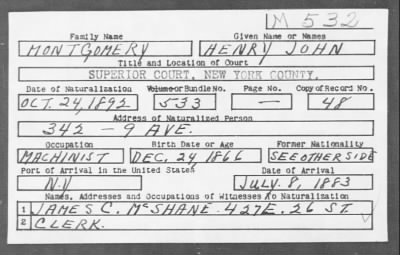 M 532
Family Name Given Name or Names
MONTGOMERY HENRY JOHN
Title and Location of Court
SUPERIOR COURT, NEW YORK COUNTY.
Date of Naturalization Volume or Bundle No. Page No. Copy of Record No.
OCT. 24, 1892 533 — 48
Address of Naturalized Person
342 - 9 AVE.
Occupation Birth Date or Age Former Nationality
MACHINIST DEC. 24, 1866 SEE OTHER SIDE
Port of Arrival in the United States Date of Arrival
N.Y JULY. 8, 1883
Names, Addresses and Occupations of Witnesses To Naturalization
1 JAMES C. McSHANE. 427 E. 26 ST.
2 CLERK.